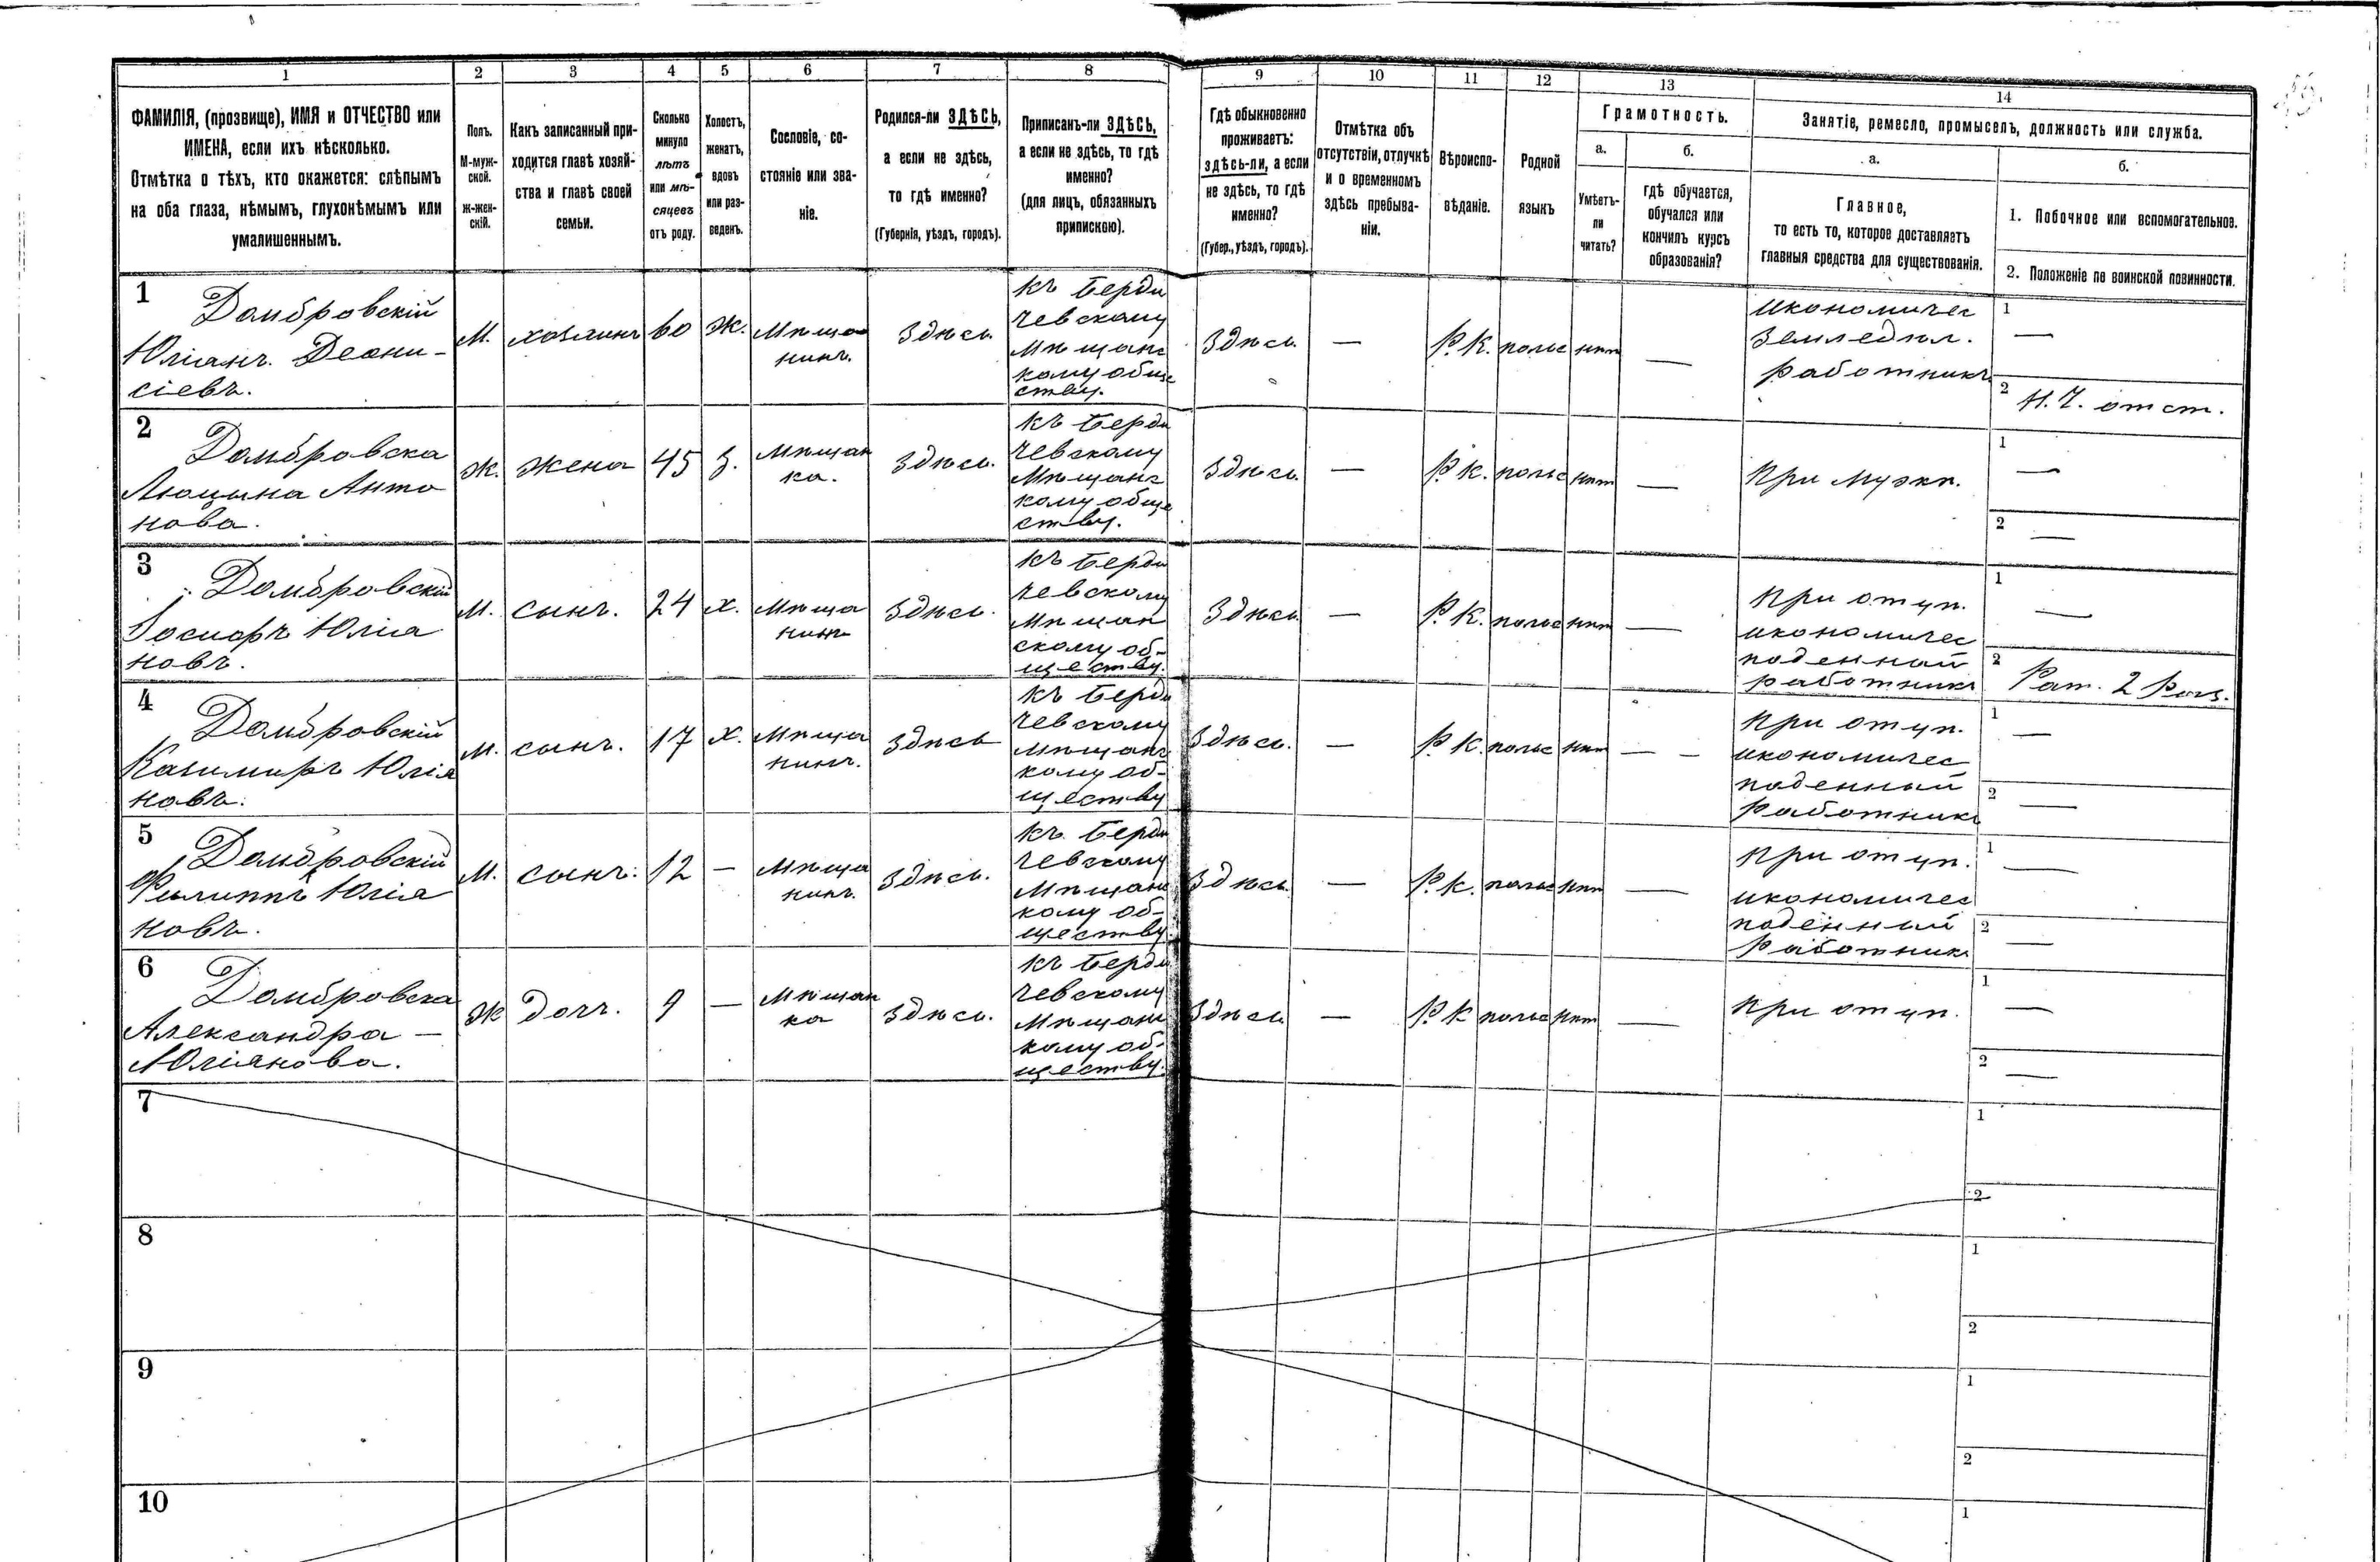 1 2 3 4 5 6 7 8 9 10 11 12 13 14
ФАМИЛІЯ, (прозвище), ИМЯ и ОТЧЕСТВО или
ИМЕНА, если ихъ нѣсколько.
Отмѣтка о тѣхъ, кто окажется: слѣпымъ
на оба глаза, нѣмымъ, глухонѣмымъ или
умалишеннымъ.
Полъ.
М-муж-
ской.
Ж-жен-
скій.
Какъ записанный при-
ходится главѣ хозяй-
ства и главѣ своей
семьи.
Сколько
минуло
лѣтъ
или мѣ-
сяцевъ
отъ роду.
Холостъ,
женатъ,
вдовъ
или раз-
веденъ.
Сословіе, со-
стояніе или зва-
ніе.
Родился-ли ЗДѢСЬ,
а если не здѣсь,
то гдѣ именно?
(Губернія, уѣздъ, городъ).
Приписанъ-ли ЗДѢСЬ,
а если не здѣсь, то гдѣ
именно?
(для лицъ, обязанныхъ
припискою).
Гдѣ обыкновенно
проживаетъ:
здѣсь-ли, а если
не здѣсь, то гдѣ
именно?
(Губер., уѣздъ, городъ).
Отмѣтка объ
отсутствіи, отлучкѣ
и о временномъ
здѣсь пребыва-
ніи.
Вѣроиспо-
вѣданіе.
Родной
языкъ
Грамотность.
а.
Умѣетъ-
ли
читать?
б.
гдѣ обучается,
обучался или
кончилъ курсъ
образованія?
Занятіе, ремесло, промыселъ, должность или служба.
а.
Главное,
то есть то, которое доставляетъ
главныя средства для существованія.
б.
1. Побочное или вспомогательное.
2. Положеніе по воинской повинности.
1
Домбровскій
Юліанъ Деони-
сіевъ.
М.
хозяинъ
60
Ж.
Мѣща
нинъ.
Здѣсь
Къ Берди
чевскому
Мѣщанс
кому обще
ству.
Здѣсь
—
Р.К.
польс
нѣт
—
икономичес
земледѣл.
работникъ
1
—
2
Н. Ч. отст.
2
Домбровска
Люцына Анто
нова.
Ж.
жена
45
З.
Мѣщан
ка.
Здѣсь.
Къ Берди
чевскому
Мѣщанс
кому обще
ству.
Здѣсь.
—
Р.К.
польс
нѣт
—
При мужѣ.
1
—
2
—
3
Домбровскій
Іосифъ Юліа
новъ.
М.
сынъ.
24
Х.
Мѣща
нинъ
Здѣсь.
Къ Берди
чевскому
Мѣщан
скому об-
ществу.
Здѣсь
—
Р.К.
польс
нѣт
—
при отцѣ.
икономичес
поденный
работникъ
1
—
2
Рат. 2 Раз.
4
Домбровскій
Казимиръ Юлія
новъ.
М.
сынъ.
17
Х.
Мѣща
нинъ.
Здѣсь
Къ Берди
чевскому
Мѣщанс
кому об-
ществу
Здѣсь.
—
Р.К.
польс
нѣт
— —
при отцѣ.
икономичес
поденный
работникъ
1
—
2
—
5
Домбровскій
Филиппъ Юлія
новъ.
М.
сынъ.
12
—
Мѣща
нинъ.
Здѣсь.
Къ Берди
чевскому
Мѣщанс
кому об-
ществу.
Здѣсь.
—
Р.К.
польс
нѣт
—
при отцѣ.
икономичес
поденный
работникъ
1
—
2
—
6
Домбровска
Александра —
Юліянова.
Ж
дочъ.
9
—
Мѣщан
ка
Здѣсь.
Къ Берди
чевскому
Мѣщанс
кому об-
ществу.
Здѣсь
—
Р.К
польс
нѣт
—
при отцѣ.
1
—
2
—
7
1
2
8
1
2
9
1
2
10
1